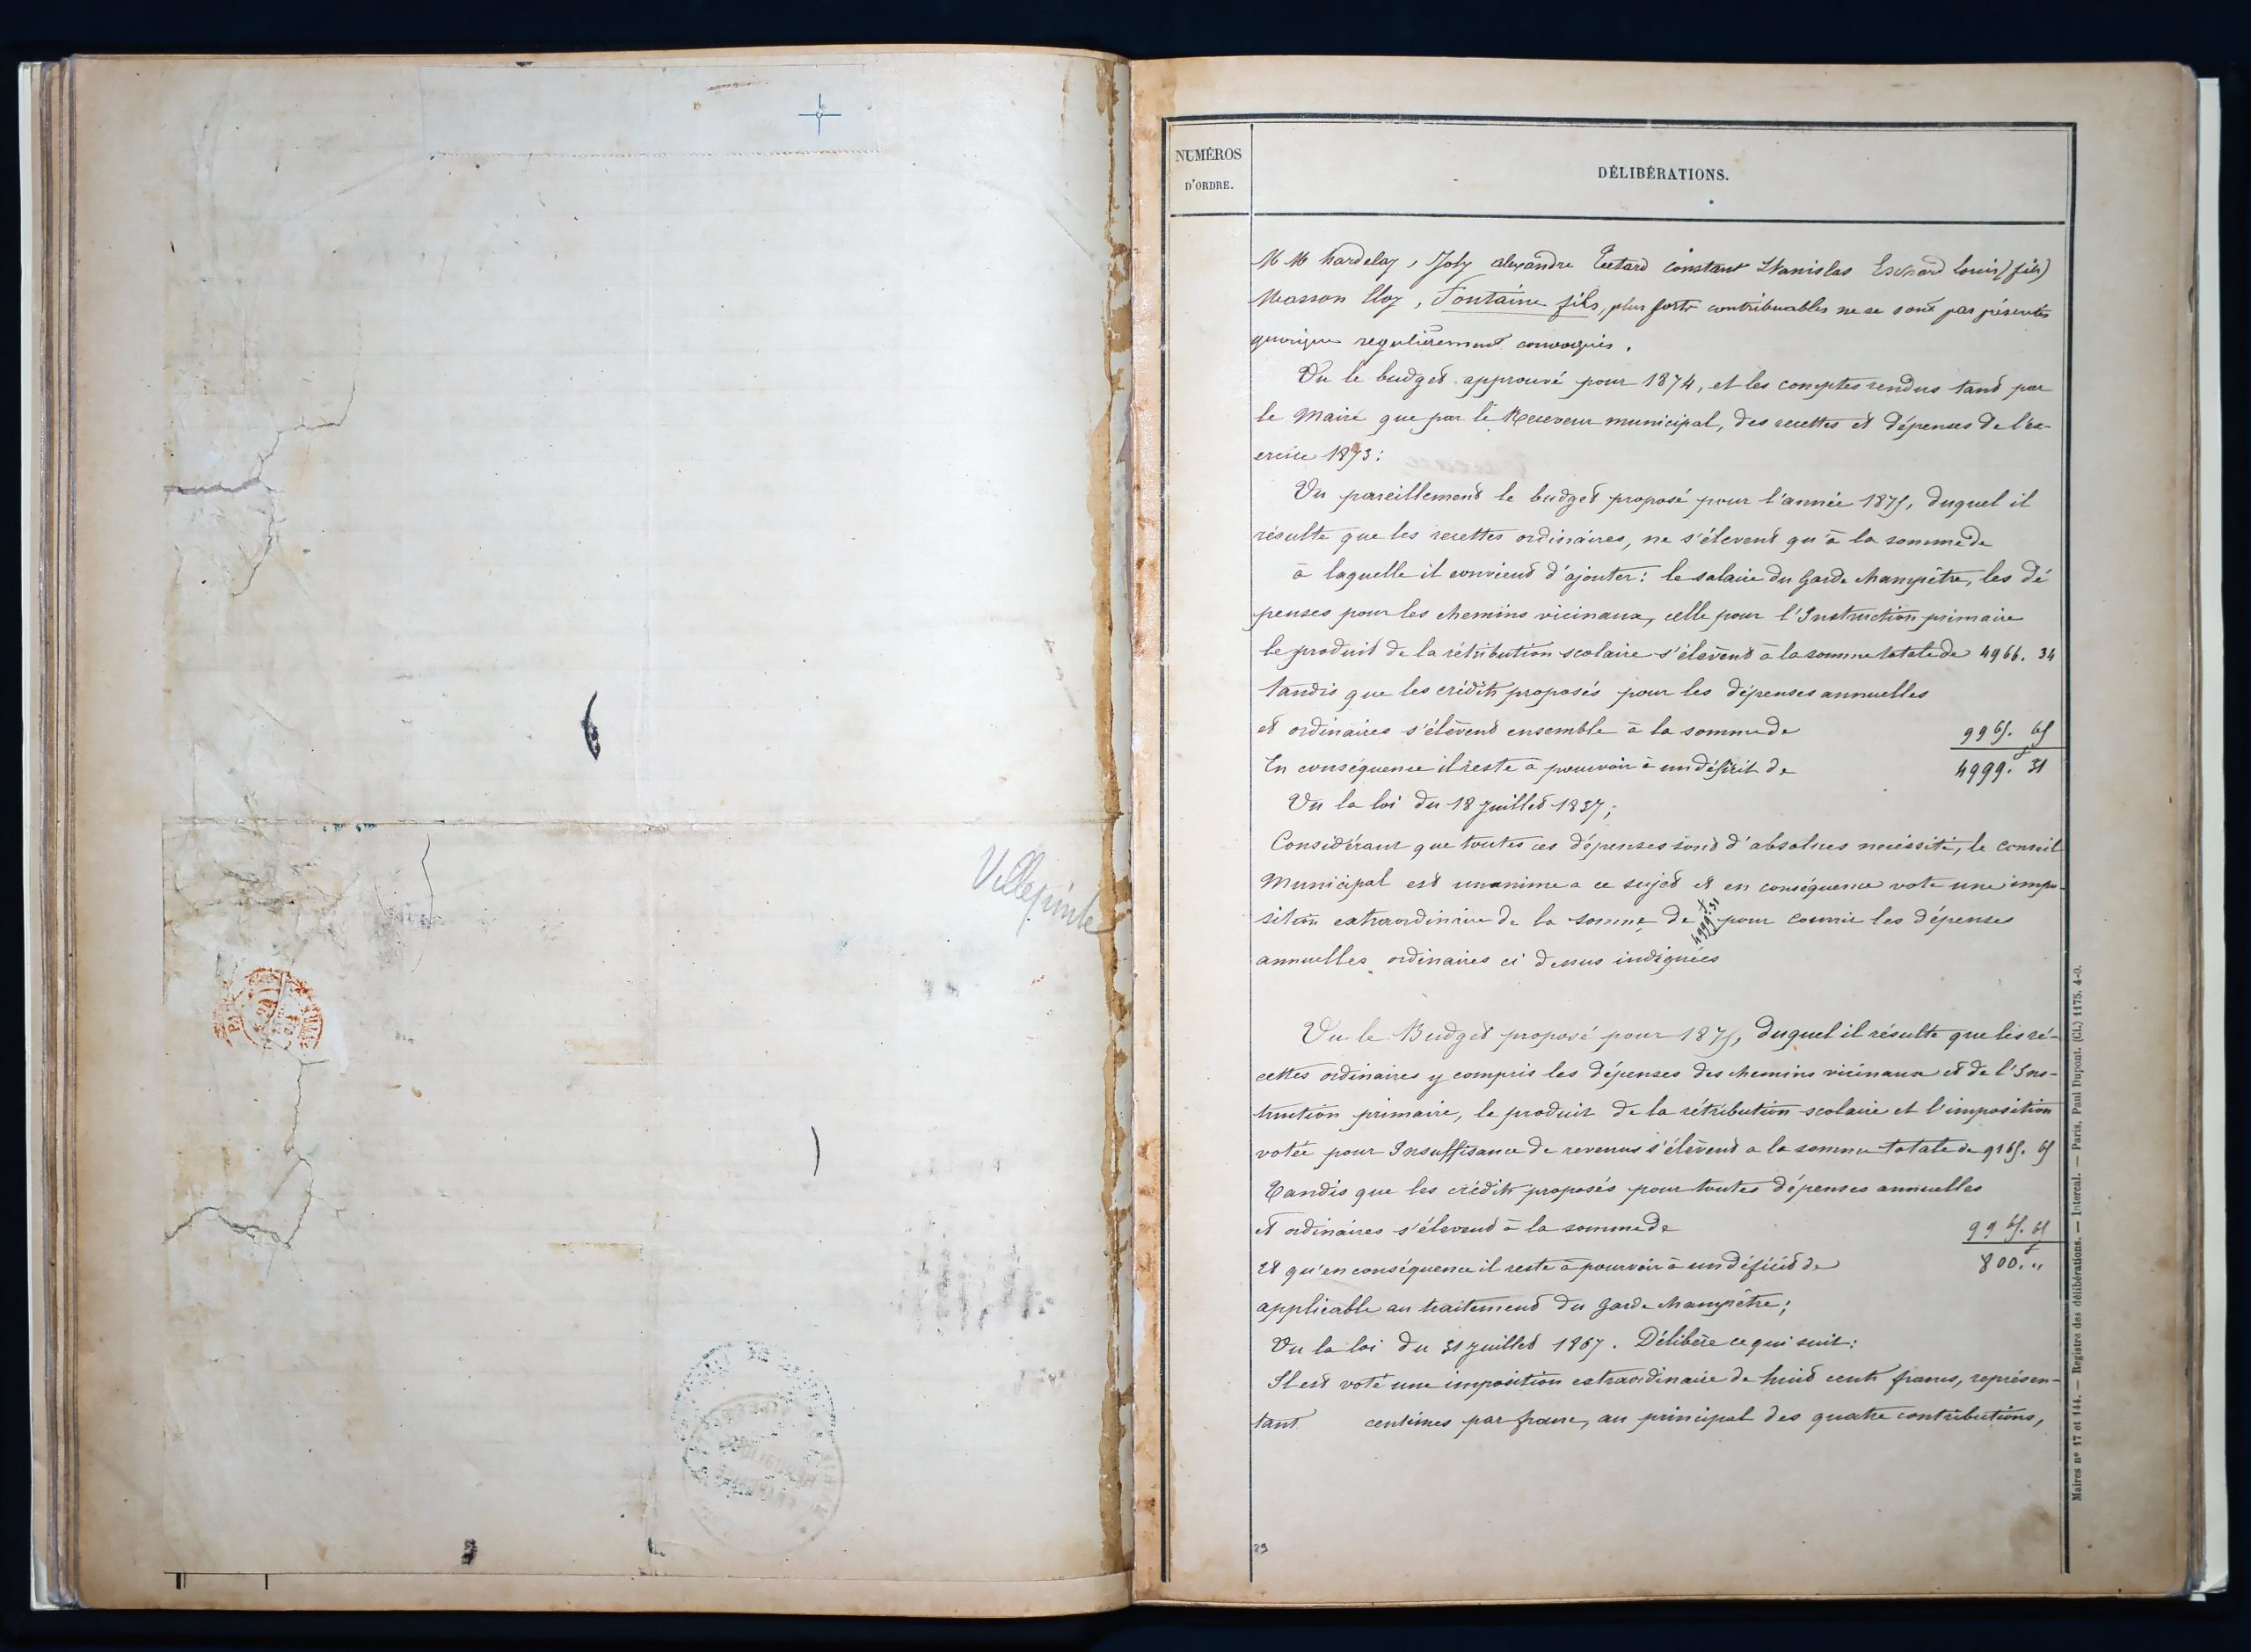 Villepinte
NUMÉROS
D'ORDRE.
DÉLIBÉRATIONS.
MM hardelay, Joly alexandre Tetard constant Stanislas louis (fils)
Masson Eloy, Fontaine fils, plus forts contribuables ne se sont pas présentés
quoique regulièrement convoqués.
Vu le budget approuvé pour 1874, et les comptes rendus tant par
le Maire que par le Receveur municipal, des recettes et dépenses de l'ex-
ercice 1873:
Vu pareillement le budget proposé pour l'année 1875, duquel il
résulte que les recettes ordinaires, ne s'élevent qu'à la somme de
à laquelle il convient d'ajouter: le salaire du Garde champêtre, les dé
penses pour les chemins vicinaux, celle pour l'Instruction primaire
le produit de la rétribution scolaire s'élèvent à la somme totale de 4966. 34
tandis que les crédits proposés pour les dépenses annuelles
et ordinaires s'élèvent ensemble à la somme de 9965. 65
En conséquence il reste à pourvoir à un déficit de 4999.f 31
Vu la loi du 18 Juillet 1837;
Considérant que toutes ces dépenses sont d'absolues necéssité, le conseil
Municipal est unanime a ce sujet et en conséquence vote une impo-
sition extraordinaire de la somme de 4999.f 31 pour couvrir les dépenses
annuelles ordinaires ci dessus indiquées
Vu le Budget proposé pour 1875, duquel il résulte que les ré-
cettes ordinaires y compris les dépenses des chemins vicinaux et de l'Ins-
truction primaire, le produit de la rétribution scolaire et l'imposition
votée pour Insuffisance de revenus s'élèvent a la somme totale de 9165. 65
Tandis que les crédits proposés pour toutes dépenses annuelles
et ordinaires s'élevent à la somme de 9965. 65
Et qu'en conséquence il reste à pourvoir à un déficit de 800.f "
applicable au traitement du Garde champêtre;
Vu la loi du 31 Juillet 1867. Délibère ce qui suit:
Il est voté une imposition extraordinaire de huit cents francs, représen-
tant centimes par franc, au principal des quatre contributions,
29
Maires nos 17 et 144. — Registre des délibérations. — Intercal. — Paris, Paul Dupont. (Cl.) 1175. 4-0.